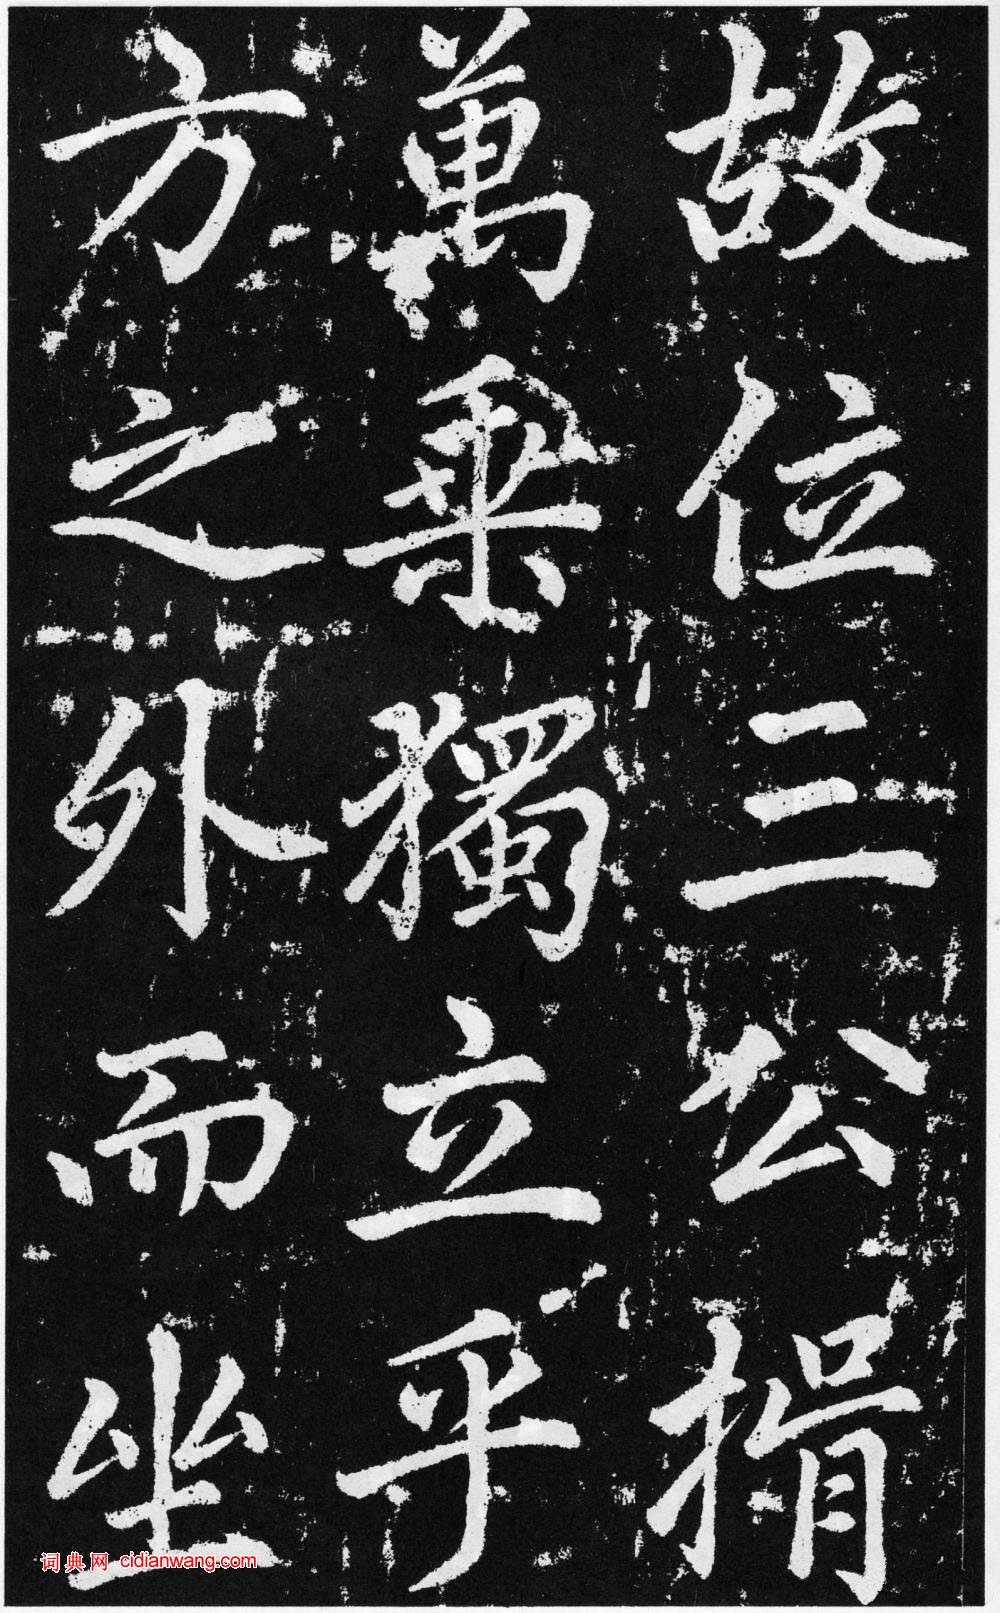 故位三公捐
萬乘獨立乎
方之外而坐
词典网 cidianwang.com